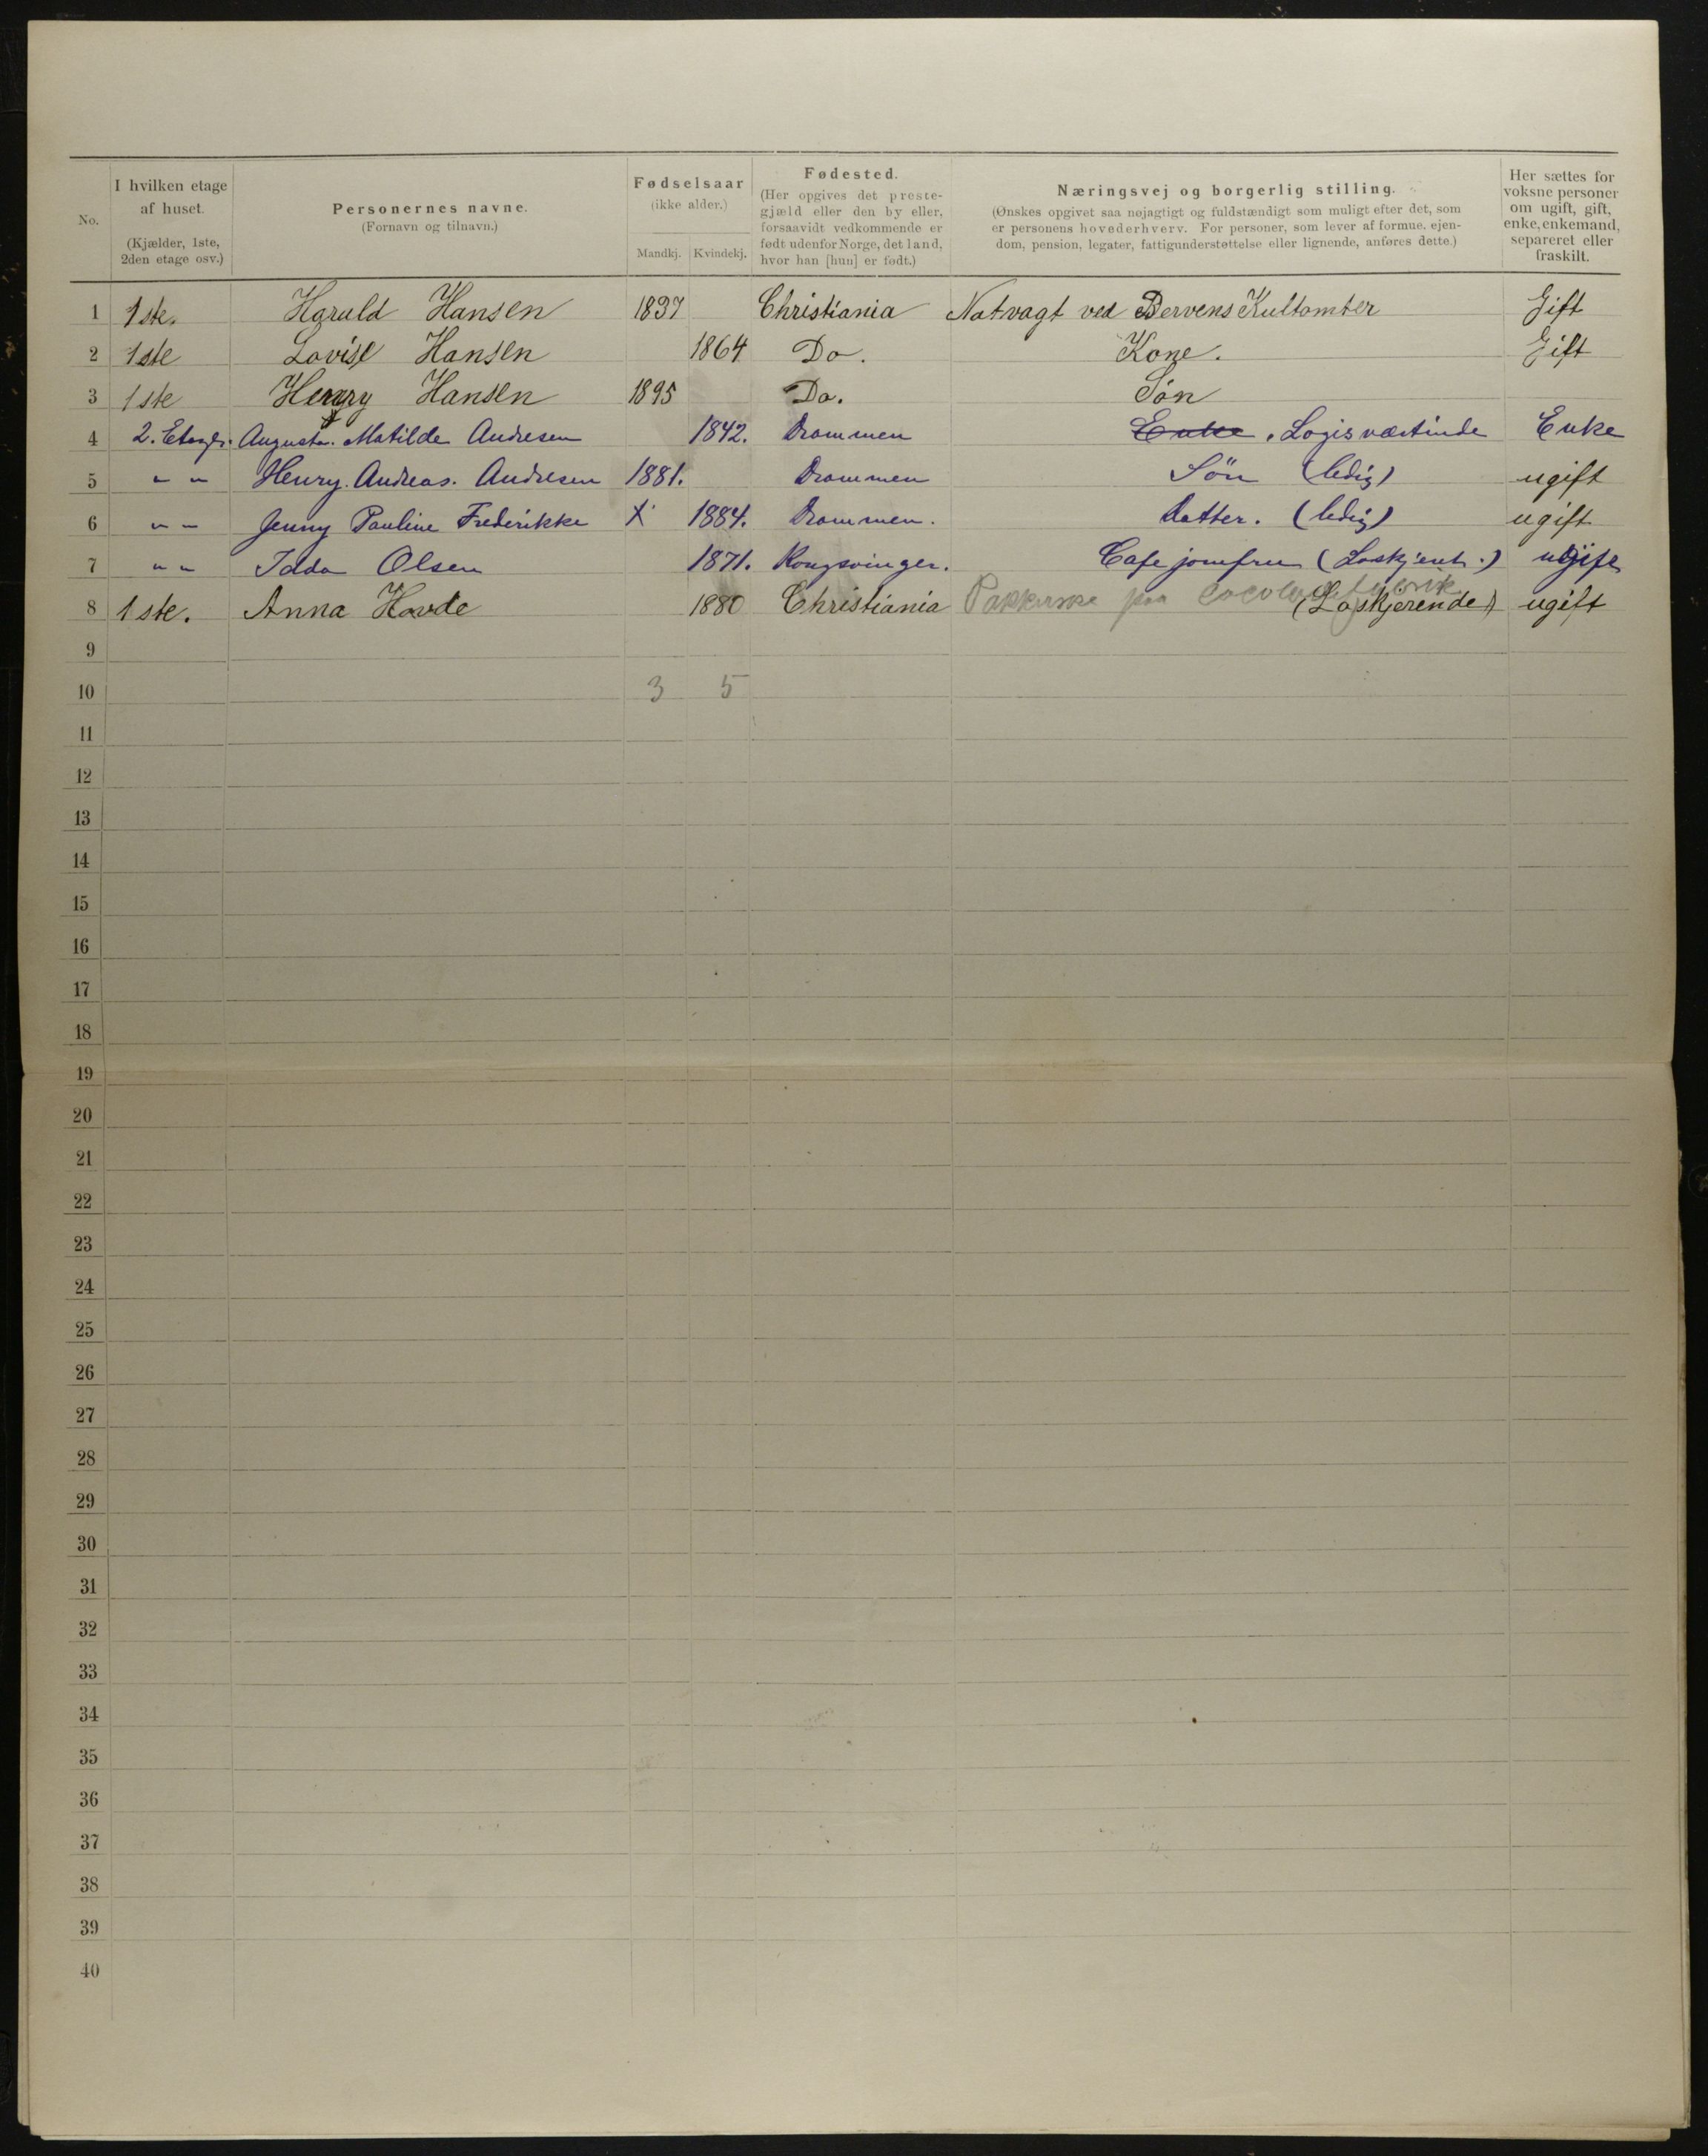 No.
I hvilken etage af huset.
(Kjælder, 1ste, 2den etage osv.)
Personernes navne.
(Fornavn og tilnavn.)
Fødselsaar
(ikke alder.)
Mandkj. Kvindekj.
Fødested.
(Her opgives det prestegjæld eller den by eller, forsaavidt vedkommende er født udenfor Norge, det land, hvor han [hun] er født.)
Næringsvej og borgerlig stilling.
(Ønskes opgivet saa nøjagtigt og fuldstændigt som muligt efter det, som er personens hovederhverv. For personer, som lever af formue, ejendom, pension, legater, fattigunderstøttelse eller lignende, anføres dette.)
Her sættes for voksne personer om ugift, gift, enke, enkemand, separeret eller fraskilt.
1 1ste. Harald Hansen 1837 Christiania Natvagt ved Gift
2 1ste Lovise Hansen 1864 Do. Kone. Gift
3 1ste Henry Hansen 1895 Do. Søn
4 2. Etage. Augusta. Matilde Andresen 1842. Drammen Enke. Logisværtinde Enke
5 " " Henry. Andreas. Andresen 1881. Drammen Sön (ledig) ugift
6 " " Jenny Pauline Frederikke X 1884. Drammen. Datter. (ledig) ugift
7 " " Idda Olsen 1871. Kongsvinger. Cafe jomfru (Loskjent.) ugift
8 1ste. Anna Hovde 1880 Christiania Pakkerske paa (Loskjerende) ugift
9
10 3 5
11
12
13
14
15
16
17
18
19
20
21
22
23
24
25
26
27
28
29
30
31
32
33
34
35
36
37
38
39
40